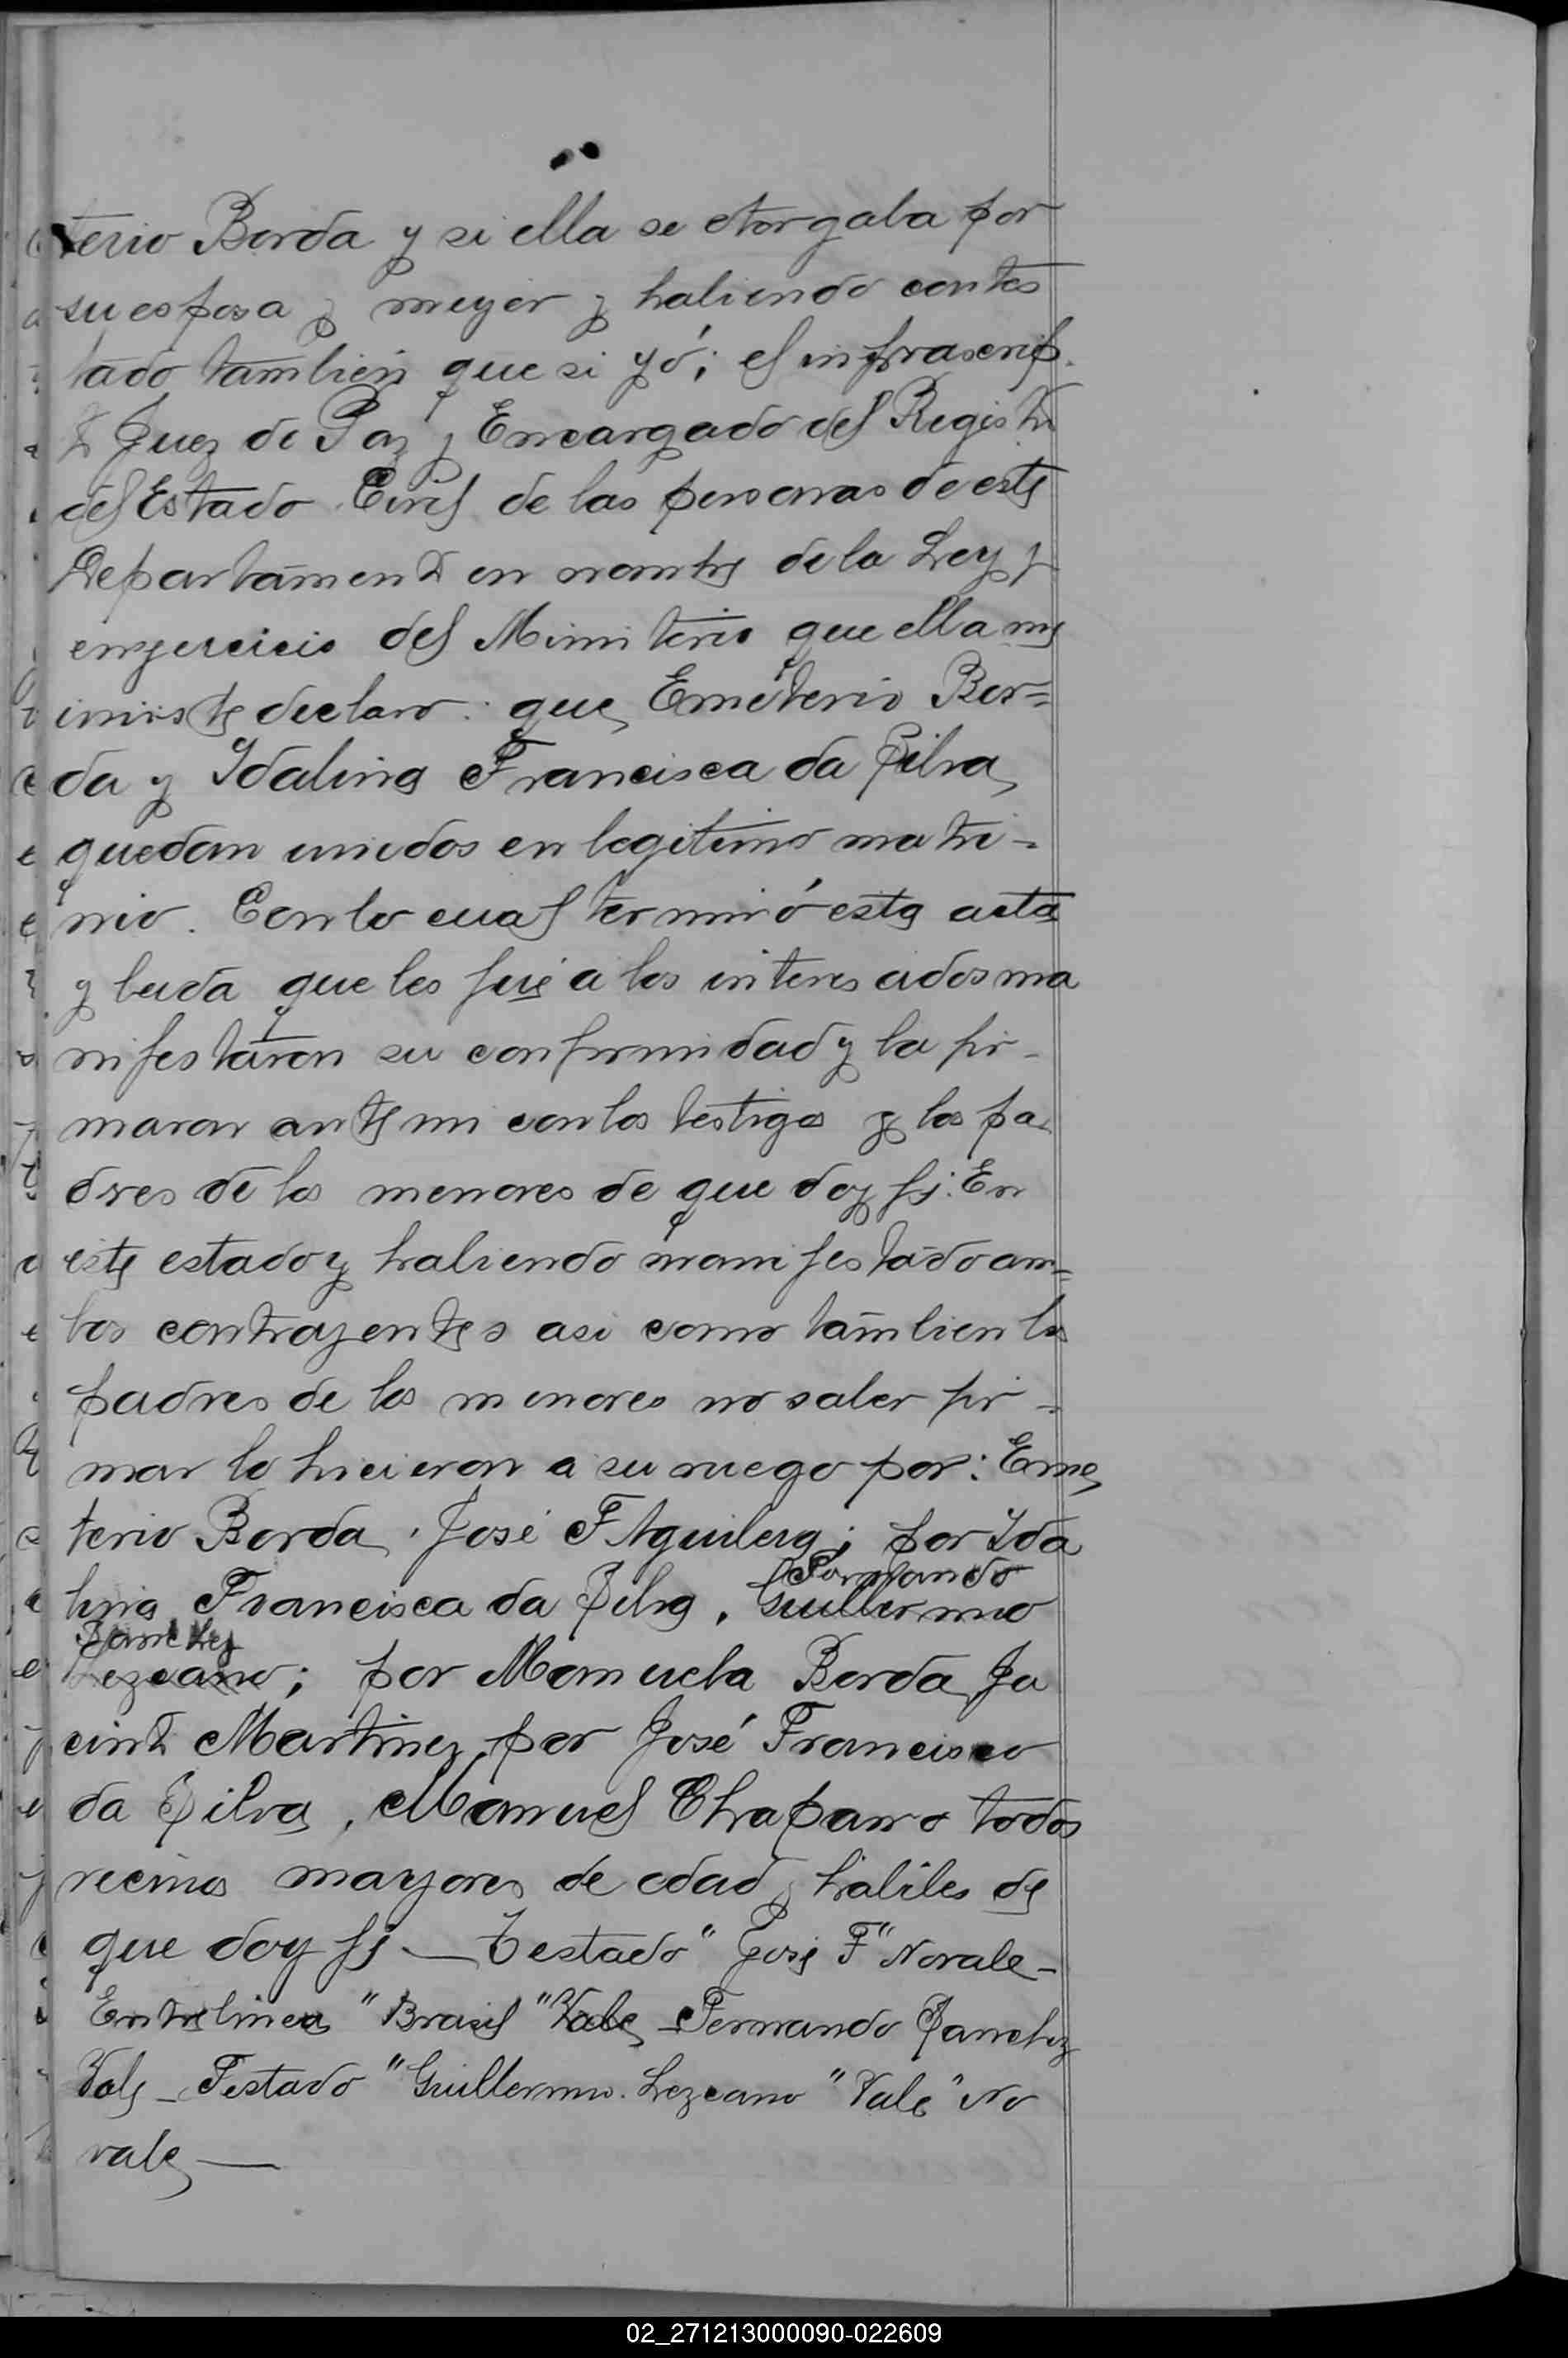 terio Borda y si ella se otorgaba por
su esposa y mujer y habiendo contes
tado tambien que si yó; el infrascrip
to Juez de Paz y Encargado del Registro
del Estado Civil de las personas de este
Departamento en nombre de la Ley y
en ejercicio del Ministerio que ella me
inviste declaro: que Emeterio Bor=
da y Idalina Francisca da Silva,
quedan unidos en legitimo matri-
nio. Con lo cual terminó esta acta
y leida que les fué a los interesados ma
nifestaron su conformidad y la fir-
maron ante mi con los testigos y los pa
dres de los menores de que doy fé. En
este estado y habiendo manifestado am=
bos contrayentes asi como tambien los
padres de los menores no saber fir-
mar lo hicieron a su ruego por: Eme
terio Borda, José F Aguilera; por Ida
Fernando
lina Francisca da Silva, Guillermo
Sanchez
Lezcano; por Manuela Borda Ja
cinto Martinez, por José Francisco
da Silva, Manuel Chaparro todos
vecinos mayores de edad y habiles de
que doy fé — Testado "José F" No vale-
Entrelinea "Brasil" Vale - Fernando Sanchez
Vale - Testado "Guillermo Lezcano" Vale" No
vale —
02_271213000090-022609